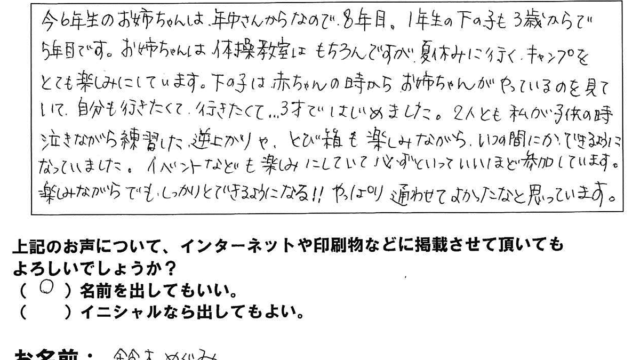 今6年生のお姉ちゃんは、年中さんからなので、8年目。1年生の下の子も3歳からで
5年目です。お姉ちゃんは体操教室はもちろんですが、夏休みに行く、キャンプを
とても楽しみにしています。下の子は赤ちゃんの時からお姉ちゃんがやっているのを見て
いて、自分も行きたくて、行きたくて…3才ではじめました。2人とも私が子供の時
泣きながら練習した逆上がりや、とび箱も楽しみながら、いつの間にかできるように
なっていました。イベントなども楽しみにしていて必ずといっていいほど参加しています。
楽しみながらでも、しっかりとできるようになる!!やっぱり通わせてよかったなと思っています。
上記のお声について、インターネットや印刷物などに掲載させて頂いても
よろしいでしょうか？
（ ○ ）名前を出してもいい。
（　　）イニシャルなら出してもよい。
お名前： 鈴木めぐみ